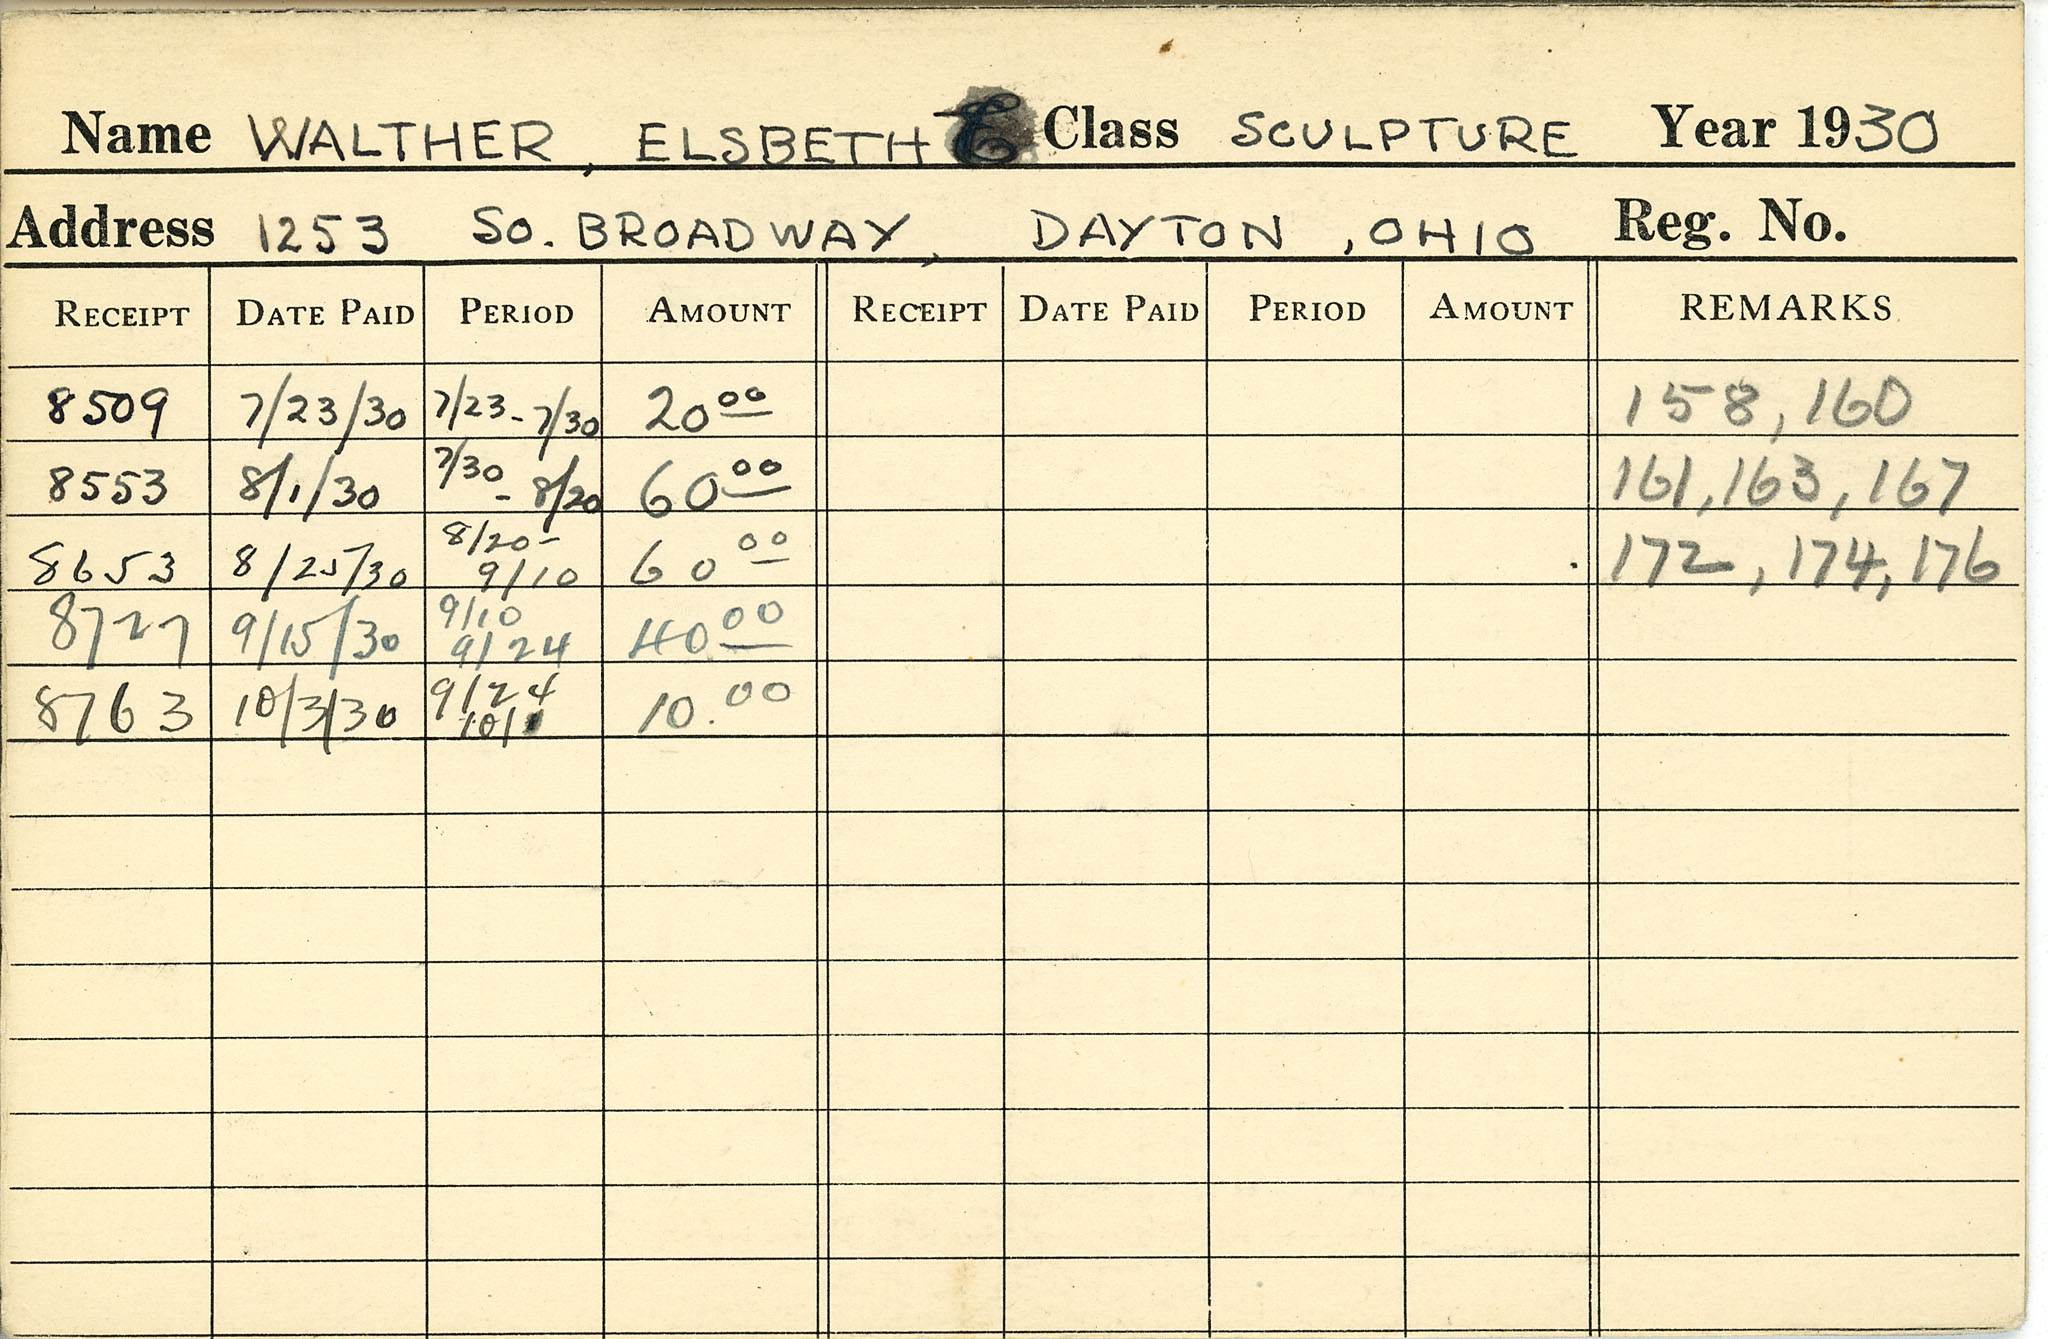 Name WALTHER, ELSBETH E Class SCULPTURE Year 1930
Address 1253 SO. BROADWAY, DAYTON, OHIO Reg. No.
RECEIPT DATE PAID PERIOD AMOUNT RECEIPT DATE PAID PERIOD AMOUNT REMARKS
8509 7/23/30 7/23-7/30 20 00 158, 160
8553 8/1/30 7/30 - 8/20 60 00 161, 163, 167
8653 8/25/30 8/20- 9/10 60 00 172, 174, 176
8727 9/15/30 9/10 9/24 40 00
8763 10/3/30 9/24 10/1 10.00